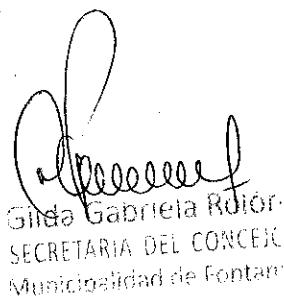 Gilda Gabriela Rolór
SECRETARIA DEL CONCEJO
Municipalidad de Fontan